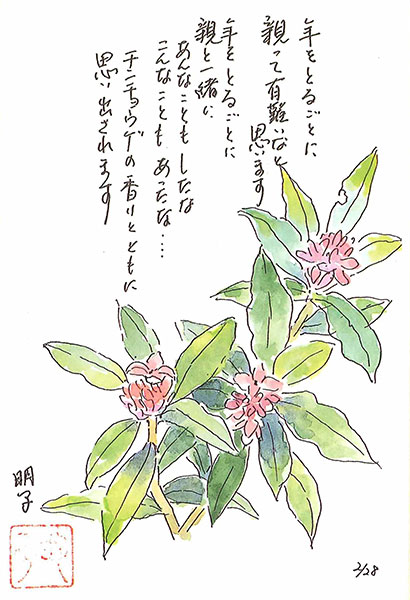 年をとるごとに
親って有難いなと
思います
年をとるごとに
親と一緒に
あんなこともしたな
こんなことも あったな....
チンチョウゲの香りとともに
思い出されます
明子
2/28